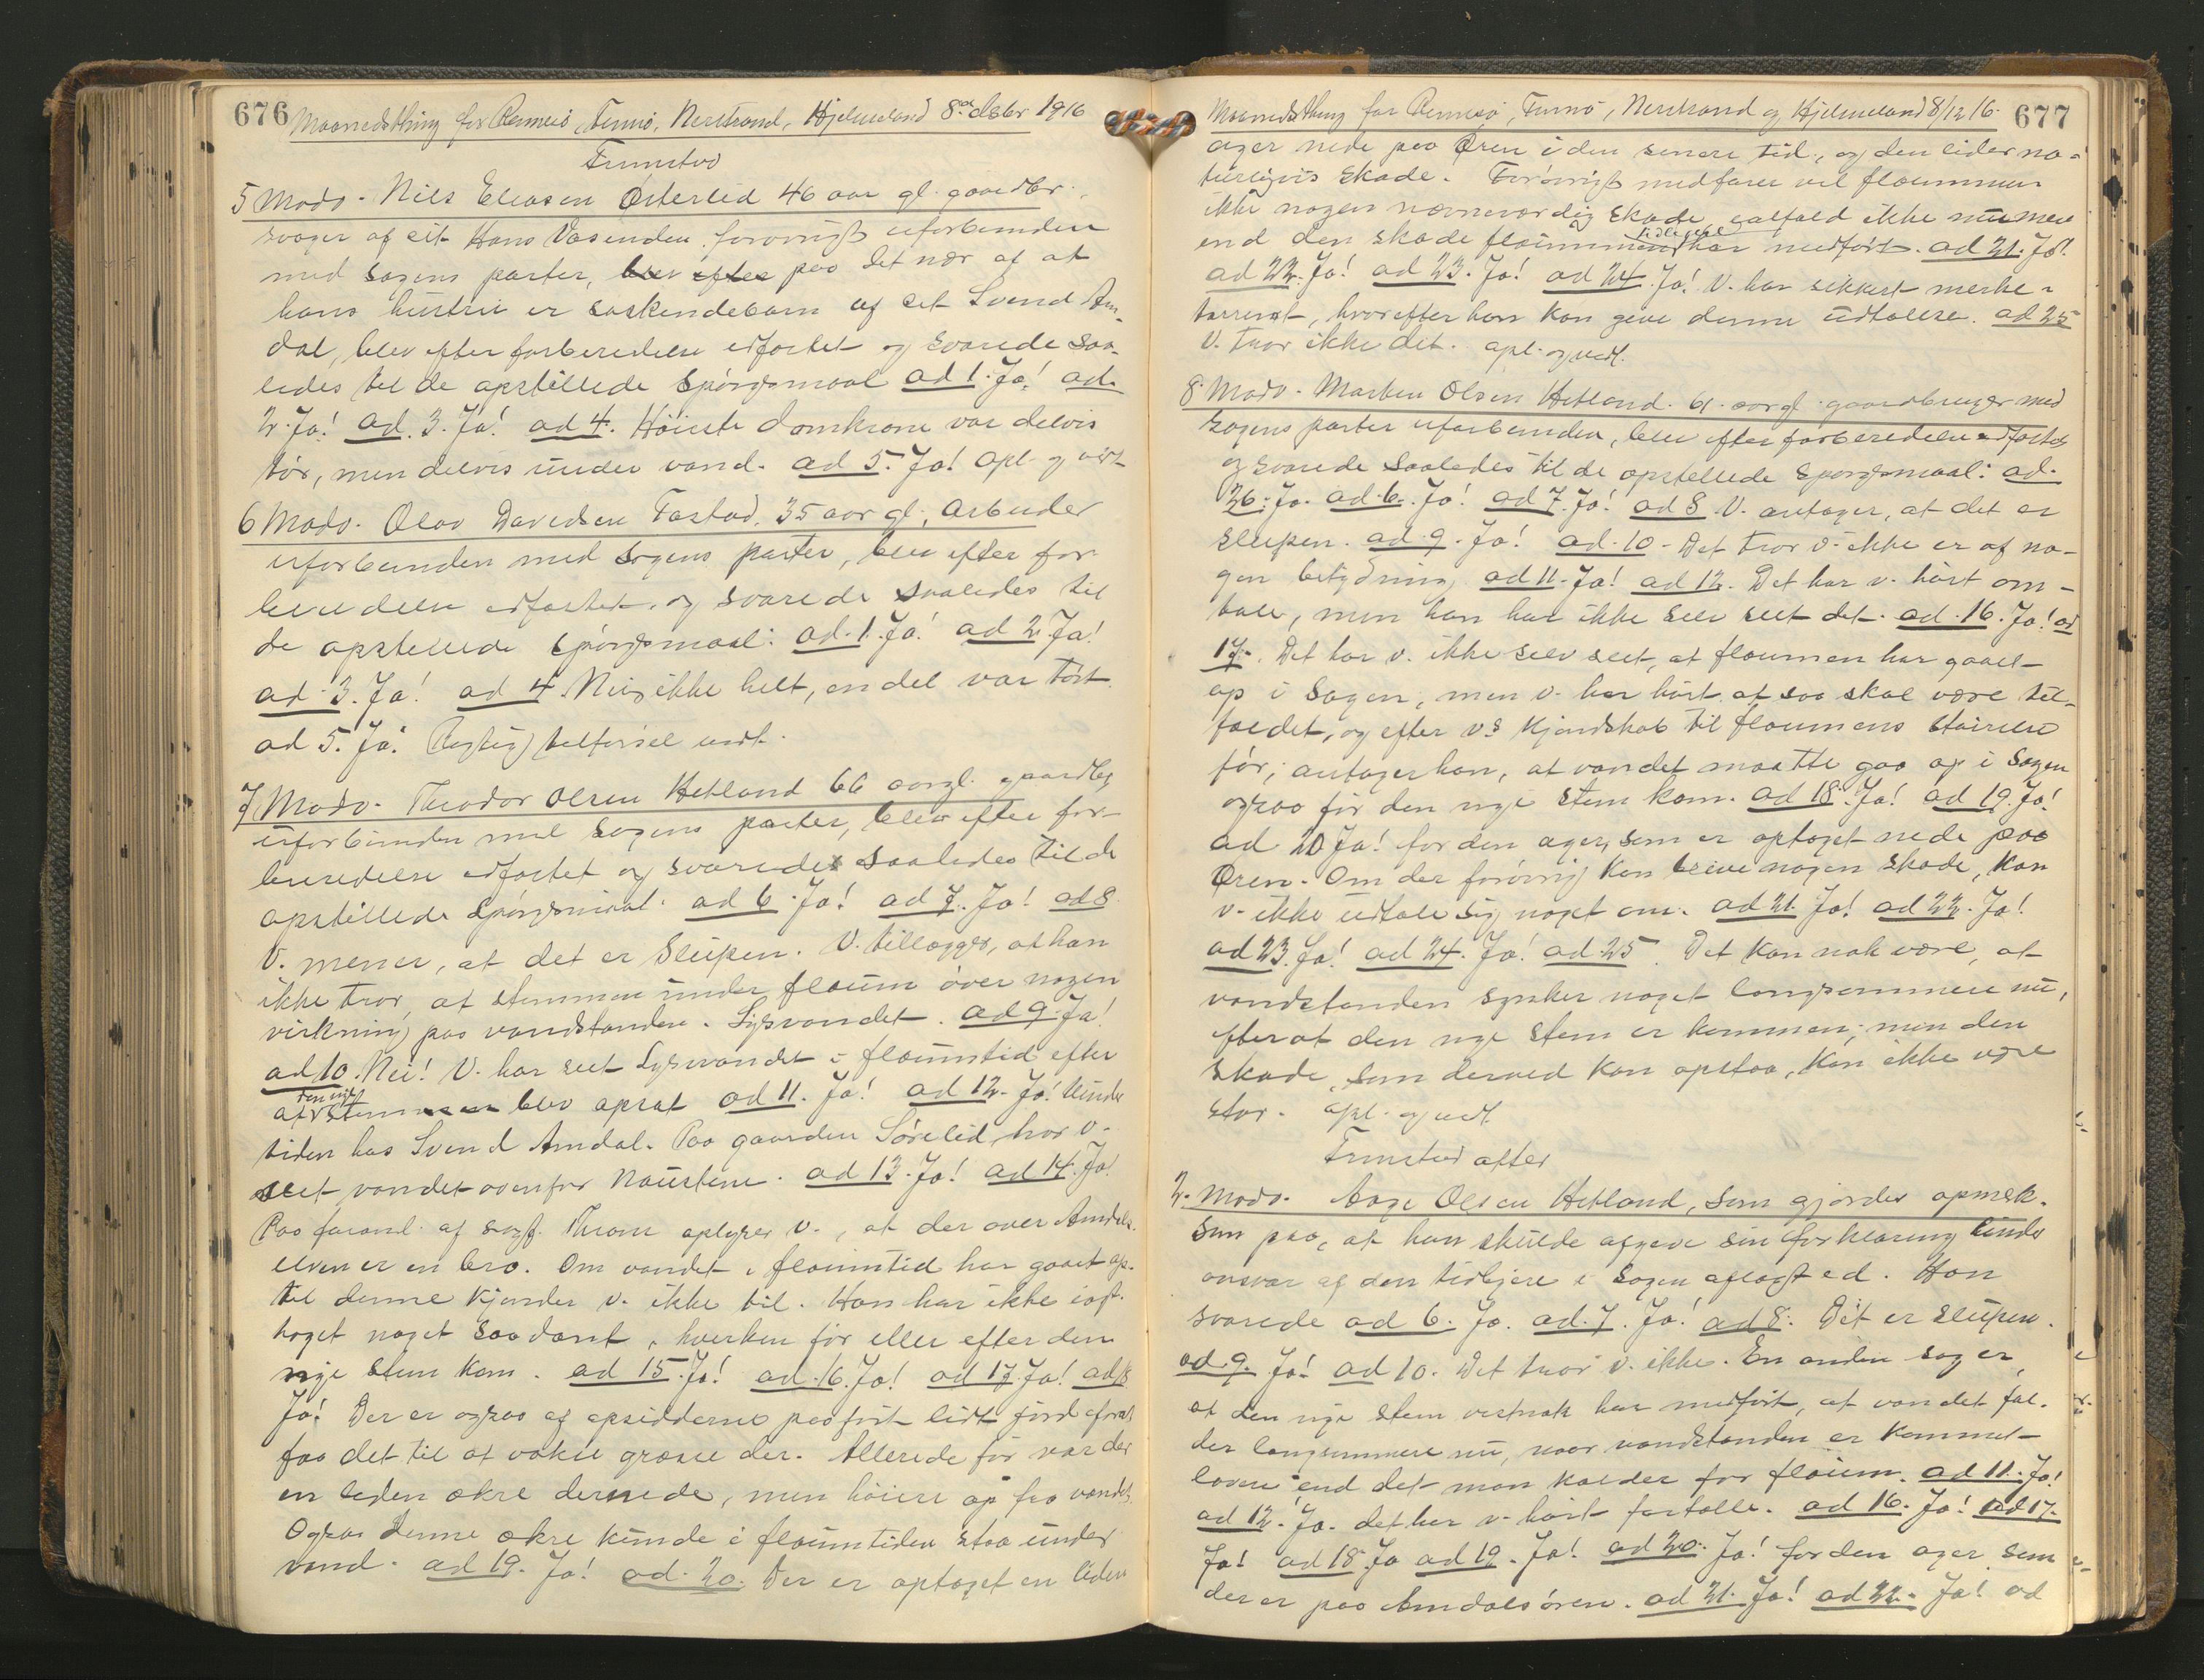 676 Maanedsthing for Rennesö, Finnö, Nerstrand, Hjelmeland 8de desbr 1916
Fremstod
5 Modv. Nils Eliasen Østerlid 46 aar gl. gaardbr.
svoger af cit. Hans Vasenden forøvrigt uforbunden
med sagens parter, blev efter paa det nær af at
hans hustru er søskendebarn af cit Svend Am-
dal, blev efter forberedelse edfæstet og svarede saa-
ledes til de opstillede Spørgsmaal ad 1. Ja! ad.
2. Ja! ad. 3. Ja! ad 4. Høieste domkrone var delvis
tör, men delvis under vand. ad 5. Ja! opl. og vedt
6 Modv. Olav Davidsen Fastad, 35 aar gl. arbeider
uforbunden med sagens parter, blev efter for
beredelse edfæstet og svarede saaledes til
de opstillede spørgsmaal: ad. 1. Ja! ad 2. Ja!
ad. 3. Ja! ad 4. Nei, ikke helt, en del var tört
ad 5. Ja. Rigtig tilförsel vedt.
7 Modv. Theodor Olsen Hetland 66 aargl. gaardbr
uforbunden med sagens parter, blev efter for-
beredelse edfæstet og svarede saaledes til de
opstillede spørgsmaal: ad 6. Ja! ad 7. Ja! ad 8
V. mener, at det er Sleipen. V. tillægger, at han
ikke tror, at stemmen under floum över nogen
virkning paa vandstanden. Lysvandet. ad 9. Ja!
ad 10. Nei! V. har seet Lysvandet i floumtid efter
den nye
at stemmen blev opsat ad 11. Ja! ad 12. Ja! Under
tiden hos Svend Amdal. Paa gaarden Sørelid har v.
seet vandet ovenfor Naustene. ad 13. Ja! ad 14. Ja!
Paa forand. af sagf. Throm oplyser v., at der over Amdals
elven er en bro. Om vandet i floumtid har gaaet op
til denne kjender v. ikke til. Han har ikke iagt-
taget noget saadant, hverken för eller efter den
nye stem kom. ad 15. Ja! ad. 16. Ja! ad 17. Ja! ad 18
Ja! Der er ogsaa af opsidderne paafört lidt jord forat
faa det til at vokse græsse der. Allerede för var der
en liden akre dernede, men höiere op fra vandet.
Ogsaa denne akre kunde i floumtiden staa under
vand. ad 19. Ja! ad. 20. Der er optaget en liden
Maanedsthing for Rennesø, Finnö, Nerstrand og Hjelmeland 8/12 16. 677
ager nede paa Øren i den senere tid, og den lider na-
turligvis Skade. Forøvrigt medfører vel floummen
ikke nogen nævneværdig Skade, ialfald ikke nu mere
tidligere
end den skade floummen har medført. ad 21. Ja!
ad 22. Ja! ad 23. Ja! ad 24. Ja! V. har sikkert merke-
, hvorefter han kan give denne udtalelse. ad 25
V. tror ikke det. opl. og vedt.
8. Modv. Morten Olsen Hetland. 61. aar gl. gaardbruger med
sagens parter uforbunden, blev efter forberedelse edfæstet
og svarede saaledes til de opstillede spørgsmaal: ad.
26. Ja. ad. 6. Ja! ad 7. Ja! ad 8. V. antager, at det er
Sleipen. ad. 9. Ja! ad. 10. Det tror v. ikke er af no-
gen betydning. ad 11. Ja! ad 12. Det har v. hört om-
tale, men han har ikke selv seet det. ad. 16. Ja! ad
17. Det har v. ikke selv seet, at floumen har gaaet
op i Sagen, men v. har hört at saa skal være til-
fældet, og efter vs kjendskab til floumens störrelse
för, antager han, at vandet maatte gaa op i Sagen
ogsaa för den nye stem kom. ad 18. Ja! ad 19. Ja!
ad 20 Ja! for den ager, som er optaget nede paa
Øren. Om der forøvrig kan blive nogen skade, kan
v. ikke udtale sig noget om. ad 21. Ja! ad 22. Ja!
ad 23. Ja! ad 24. Ja! ad 25. Det kan nok være, at
vandstanden synker noget langsommere nu,
efterat den nye stem er kommen; men den
skade, som derved kan opstaa, kan ikke være
stor. opl. og vedt.
Fremstod atter
2. Modv. Aage Olsen Hetland, som gjordes opmerk-
som paa, at han skulde afgive sin forklaring under
ansvar af den tidligere i sagen aflagt ed. Han
svarede ad 6. Ja. ad. 7. Ja! ad 8. Det er Sleipen.
ad. 9. Ja! ad 10. Det tror v. ikke. En anden sag er,
at den nye stem vistnok har medfört, at vandet fal-
der langsommere nu, naar vandstanden er kommet
lavere end det man kalder for floum. ad 11. Ja!
ad 12. Ja. det har v. hört fortælle. ad 16. Ja! ad 17.
Ja! ad 18. Ja ad 19. Ja! ad 20. Ja! for den ager som
der er paa Amdalsören. ad 21. Ja! ad 22. Ja! ad